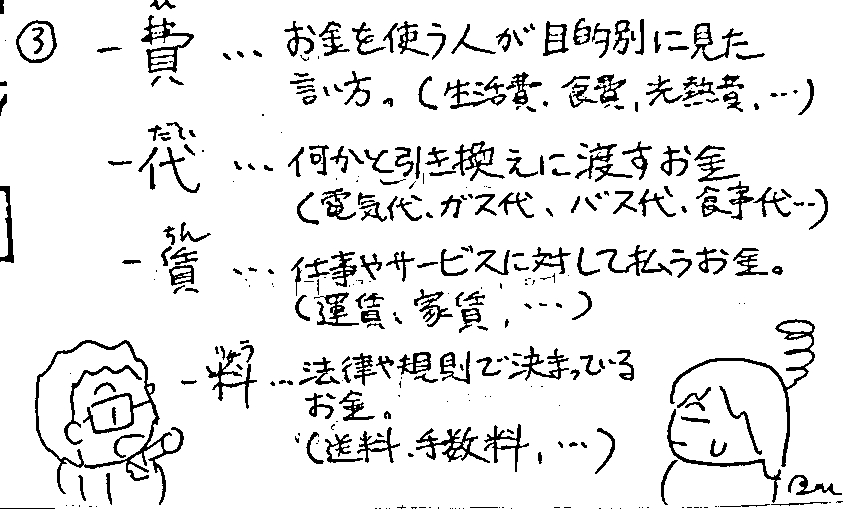 ③ -費 … お金を使う人が目的別に見た
言い方。(生活費、食費、光熱費、…)
だい
-代 … 何かと引き換えに渡すお金
(電気代、ガス代、バス代、食事代…)
ちん
-賃 … 仕事やサービスに対して払うお金。
(運賃、家賃、…)
りょう
-料 … 法律や規則で決まっている
お金。
(送料、手数料、…)